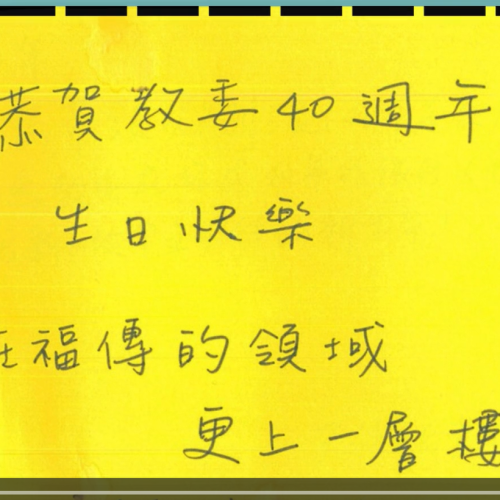 恭賀教委40週年
生日快樂
在福傳的領域
更上一層樓